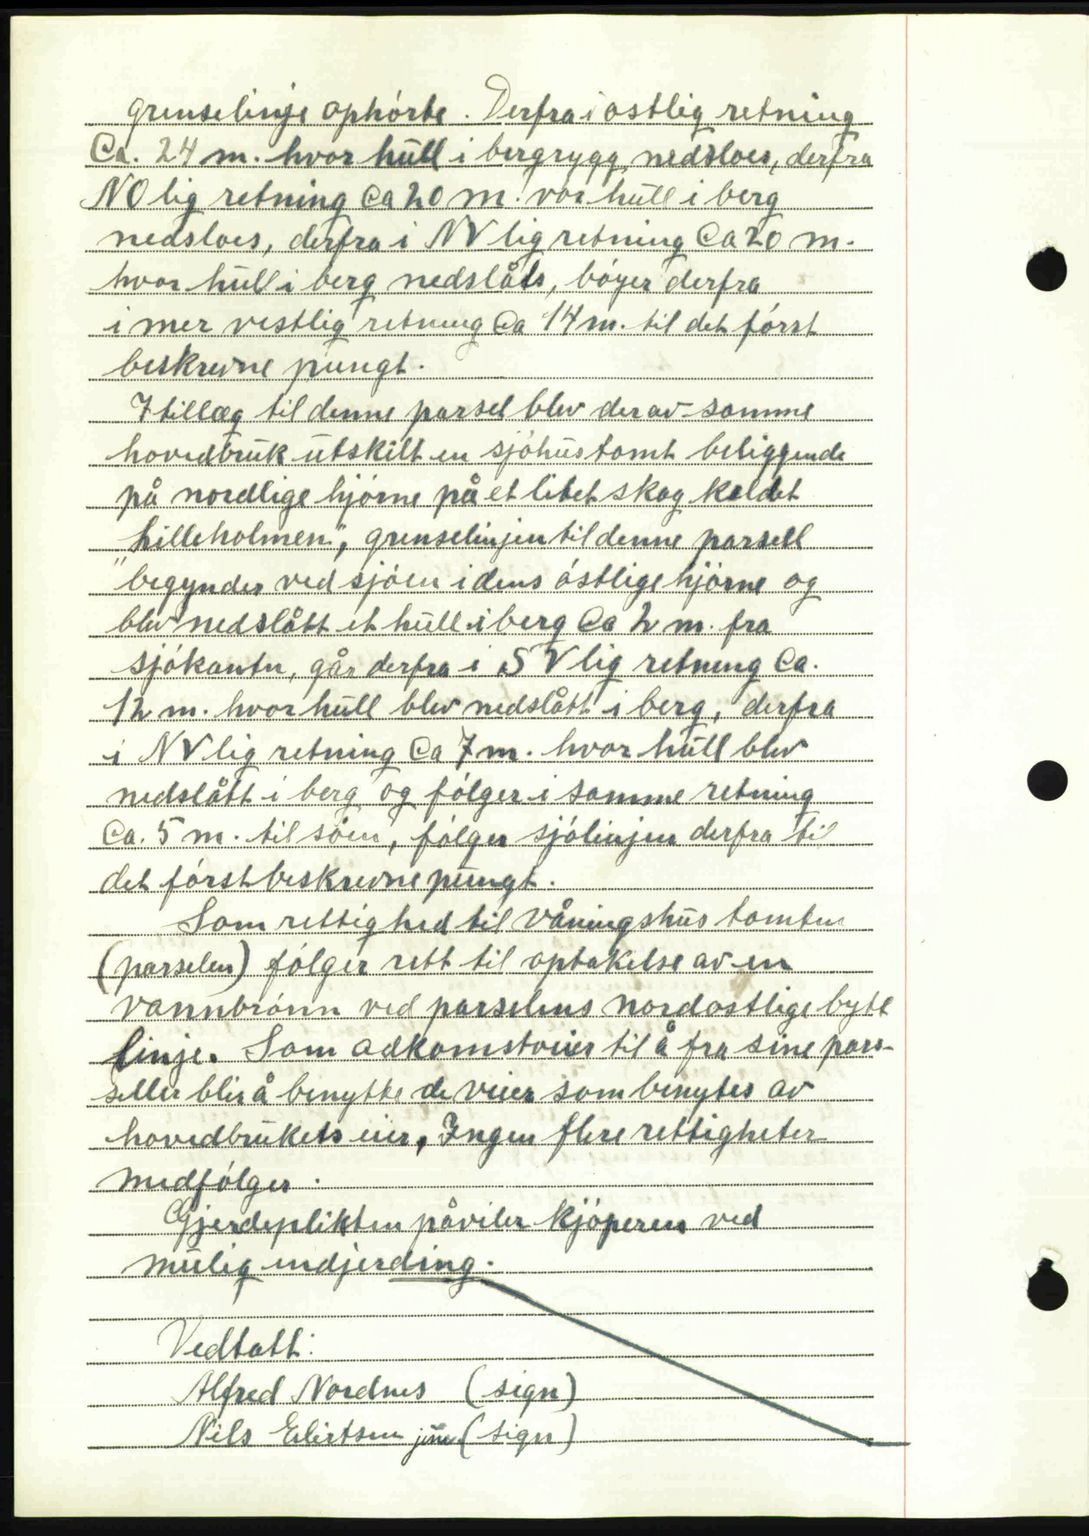 grenselinje ophörte. Derfra i östlig retning
Ca. 24 m. hvor hull i bergrygg nedsloes, derfra
NO lig retning Ca 20 m. vor hull i berg
nedsloes, derfra i NV lig retning Ca 20 m.
hvor hull i berg nedslåts, böyer derfra
i mer vestlig retning Ca 14 m. til det först
beskrevne pungt.
I tillæg til denne parsel blev der av samme
hovedbruk utskilt en sjöhustomt beliggende
på nordlige hjörne på et litet skag kaldet
"Lilleholmen", grenselinjen til denne parsell
begynder ved sjöen i dens östlige hjörne og
blev nedslått et hull i berg Ca 2 m. fra
sjökanten, går derfra i SV lig retning Ca.
12 m. hvor hull blev nedslått i berg, derfra
i NV lig retning Ca 7 m. hvor hull blev
nedslått i berg og fölger i samme retning
Ca. 5 m. til söen, fölger sjölinjen derfra til
det först beskrevne pungt.
Som rettighed til våningshus tomten
(parselen) fölger rett til optakelse av en
vannbrönn ved parselens nordostlige bytt
linje. Som adkomstveier til å fra sine pars-
seller blir å benytte de veier som benytes av
hovedbrukets eier, Ingen flere rettigheter
medfölger.
Gjerdeplikten påviler kjöperen ved
mulig indjerding.
Vedtatt:
Alfred Nordnes (sign)
Nils Eilertsen jun (sign)